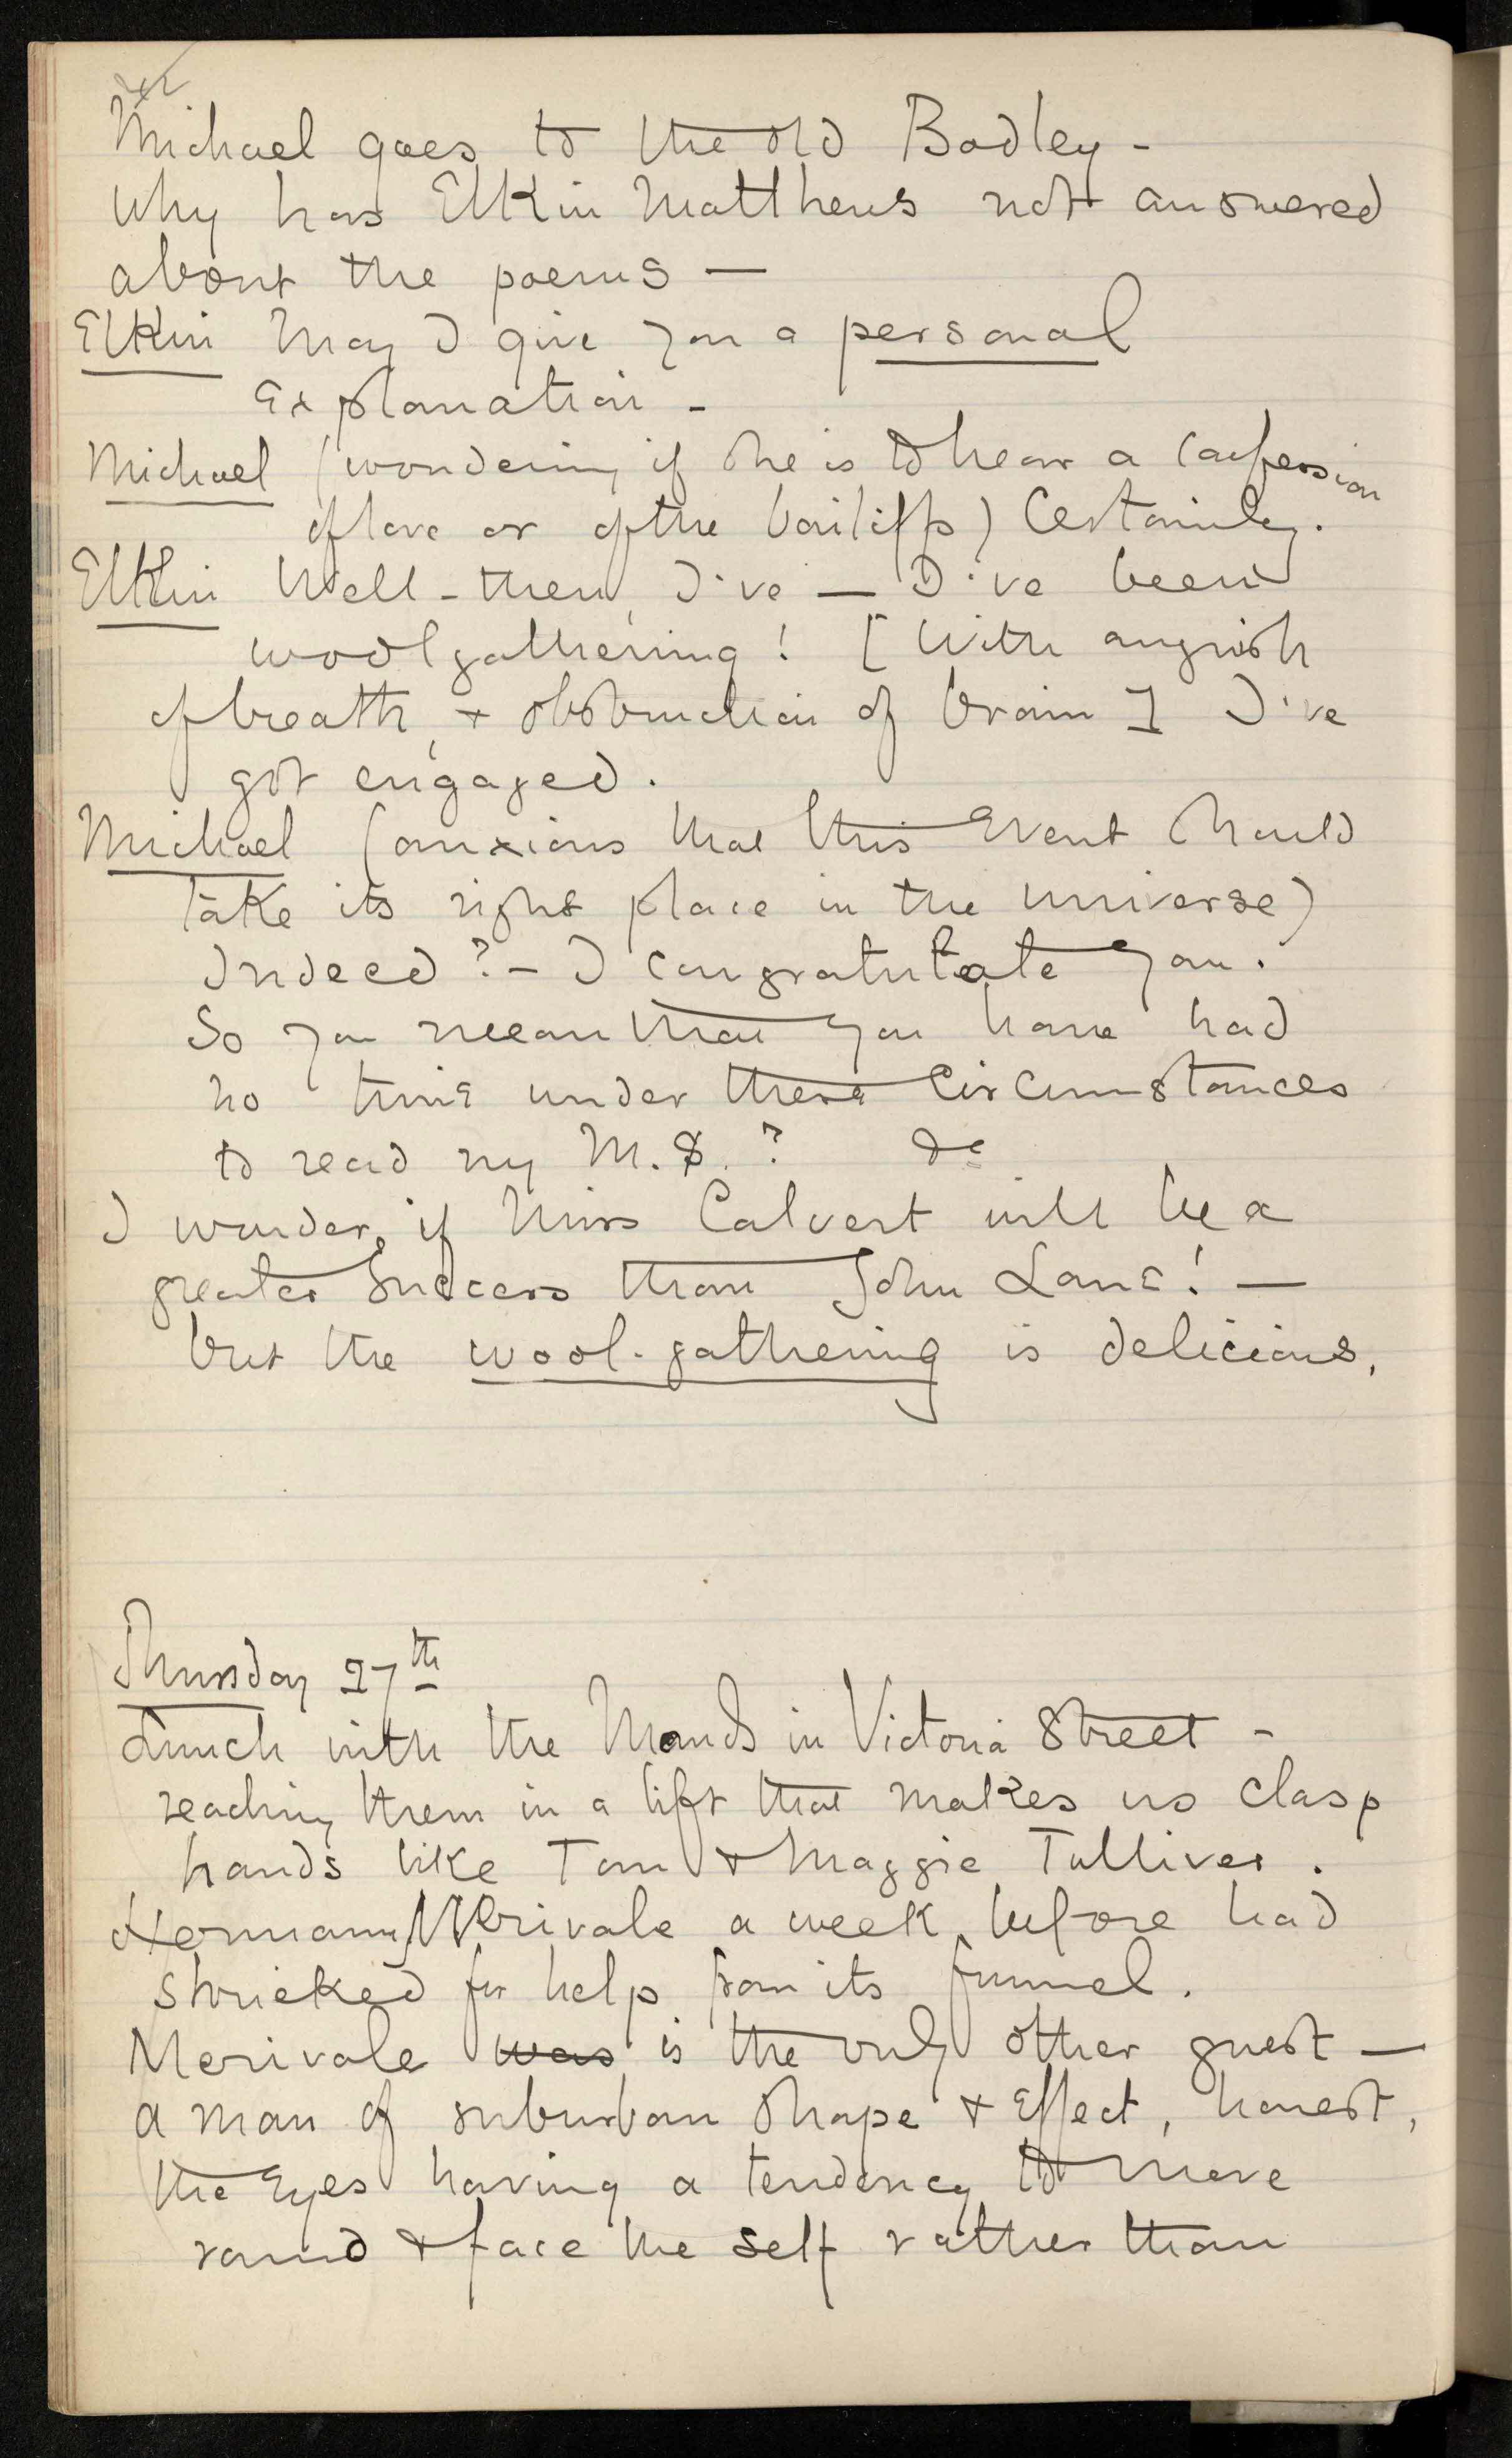 Michael goes to the old Bodley -
Why has Elkin Matthews not answered
about the poems —
Elkin May I give you a personal
Explanation -
Michael (wondering if she is to hear a confession
of love or of the bailiffs) Certainly.
Elkin Well - then, I've — I've been
woolgathering! [With anguish
of breath, + obstruction of brain] I've
got engaged.
Michael (anxious that this Event should
take its right place in the universe)
Indeed? - I congratulate you.
So you mean that you have had
no time under these circumstances
to read my M.S.? &c
I wonder, if Miss Calvert will be a
greater success than John Lane! —
but the wool-gathering is delicious,
Thursday 27th
Lunch with the Monds in Victoria Street -
reaching them in a lift that makes us clasp
hands like Tom & Maggie Tulliver.
Hermann Merivale a week before had
shrieked for help from its funnel.
Merivale was is the only other guest —
a man of suburban shape + Effect, honest,
the Eyes having a tendency to move
round + face the self rather than